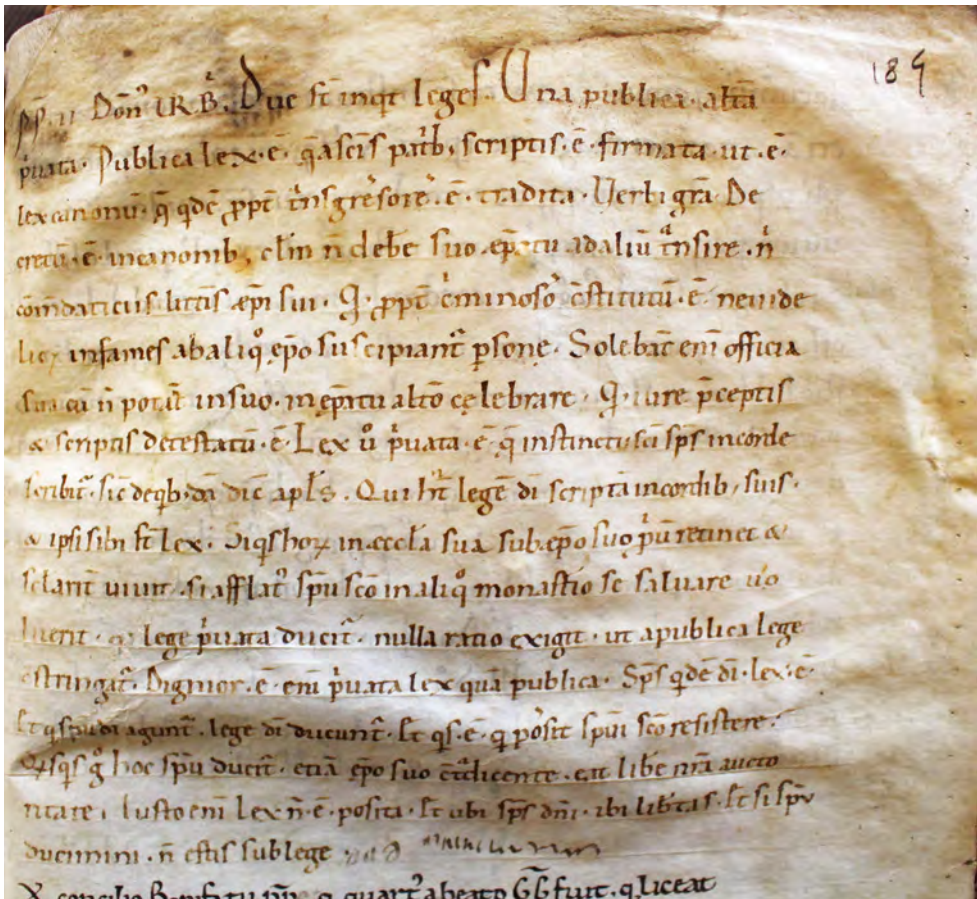 PP. II Domn' UR.B. Duę st inqt leges. Una publica. alta
p'uata. Publica lex. ē. q̄ a scīs patrib; scriptis. ē. firmata. ut. ē.
lex canonū. q̄ qdē ꝓpt t̄nsgressores. ē. tradita. Uerbi grā. De
cretū. ē. in canonib; cl̄m n̄ debe suo ep̄atu ad aliū t̄nsire. n̄
cōmdaticiis littis æp̄i sui. Q. ꝓpt c̄minoso' c̄stitutū. ē. ne uide
lic; infames ab aliqº ep̄o suscipiant̄ psone. Solebāt eni officia
sua cū n̄ potūt in suo. in ep̄atu alto cęlebrare. Q. iure p̄ceptis
& scriptis detestatū. ē. Lex ů p̄uata. ē. q̄ instinctu scī sp̄s in corde
scribit̄. sic de qb;dā dic̄ apl̄s. Qui hn̄t legē dī scriptā in cordib; suis.
& ipsi sibi st̄ lex. Siqs hoꝝ in æccl̄a sua sub æp̄o suo p̄pu̅ retinet &
sclarit̄ uiuit. si afflat' sp̄u scō in aliqº monastio se saluare uo
luerit. q; lege p̄uata ducit̄. nulla ratio exigit. ut a publica lege
c̄stringat̄. Dignior. ē. eni p̄uata lex quā publica. Sp̄s qdē dī. lex. ē.
Et q sp̄u dī agunt̄. lege dī ducunt̄. Et qs. ē. q possit sp̄ui scō resistere.
Qsqs g̊ hoc sp̄u ducit̄. etiā ep̄o suo c̄tdicente. eat libe nr̄a aucto
ritate. Iusto eni lex n̄. ē. posita. Et ubi sp̄s dn̄i. ibi libtas. Et si sp̄u
ducimini. n̄ estis sub lege
concilio Bonifatii quart' a beato GG fuit. q liceat
189